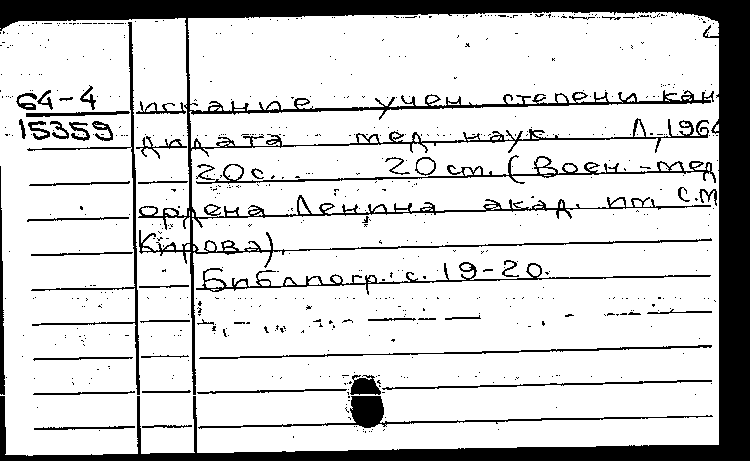 64-4 искание учен. степени кан-
15359 дидата мед. наук. Л., 1964
20с. 20 см. (Воен.-мед.
ордена Ленина акад. им. С.М.
Кирова).
Библиогр.: с. 19-20.